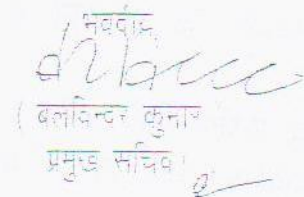 भवदीय,
( बलविन्दर कुमार
प्रमुख सचिव।